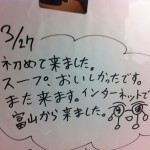 3/27
初めて来ました。
スープ、おいしかったです。
また来ます。インターネットで
富山から来ました。